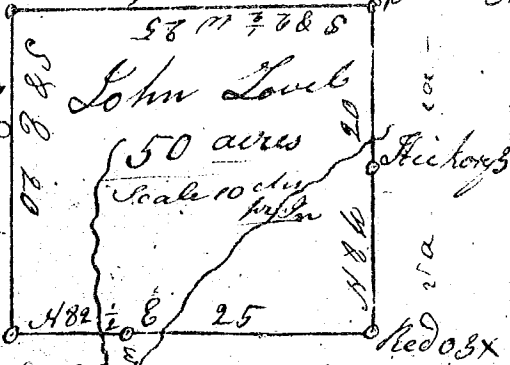 S 82 ½ W 25
S 8 E 20
John Lovel
50 acres
Scale 10 chs
pr In
N 8 W 20
Hickory
N 82 ½ E 25
Red o 3 x